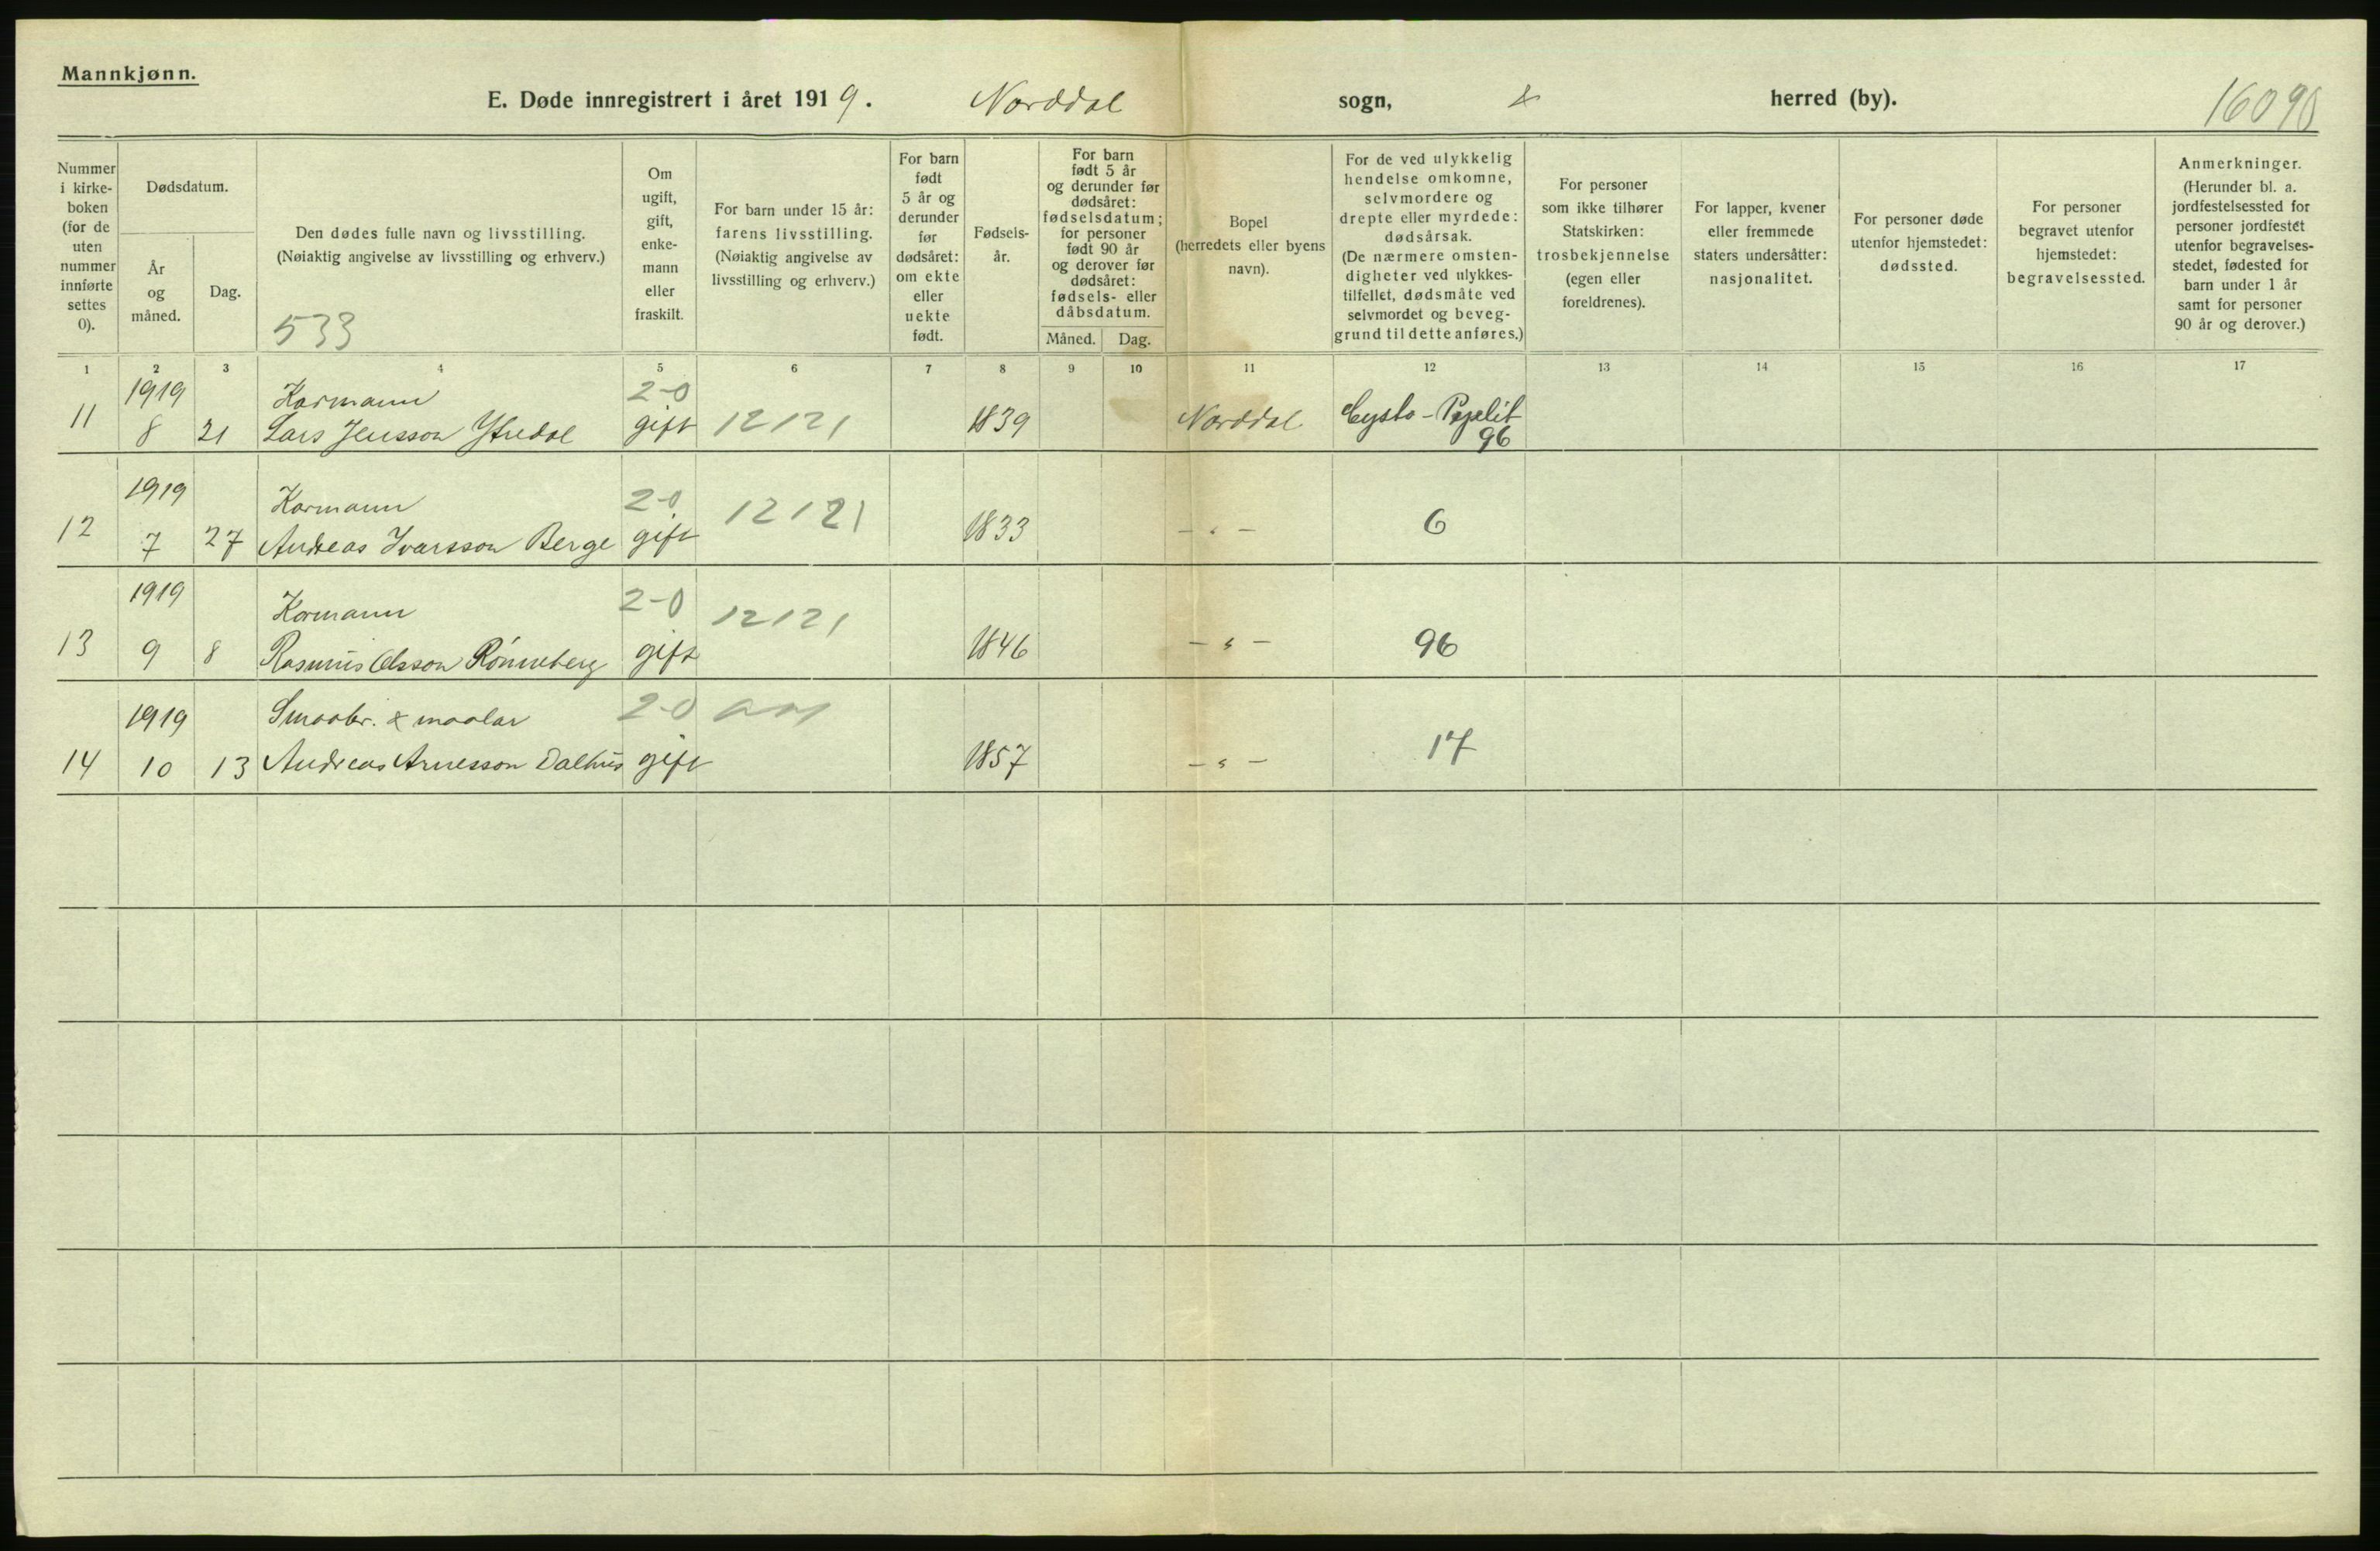 Mannkjønn.
E. Døde innregistrert i året 1919. Norddal sogn, herred (by). 16090
Nummer
i kirke-
boken
(for de
uten
nummer
innførte
settes
0).
Dødsdatum.
År
og
måned.
Dag.
Den dødes fulle navn og livsstilling.
(Nøiaktig angivelse av livsstilling og erhverv.)
533
Om
ugift,
gift,
enke-
mann
eller
fraskilt.
For barn under 15 år:
farens livsstilling.
(Nøiaktig angivelse av
livsstilling og erhverv.)
For barn
født
5 år og
derunder
før
dødsåret:
om ekte
eller
uekte
født.
Fødsels-
år.
For barn
født 5 år
og derunder før
dødsåret:
fødselsdatum;
for personer
født 90 år
og derover før
dødsåret:
fødsels- eller
dåbsdatum.
Måned. Dag.
Bopel
(herredets eller byens
navn).
For de ved ulykkelig
hendelse omkomne,
selvmordere og
drepte eller myrdede:
dødsårsak.
(De nærmere omsten-
digheter ved ulykkes-
tilfellet, dødsmåte ved
selvmordet og beveg-
grund til dette anføres.)
For personer
som ikke tilhører
Statskirken:
trosbekjennelse
(egen eller
foreldrenes).
For lapper, kvener
eller fremmede
staters undersåtter:
nasjonalitet.
For personer døde
utenfor hjemstedet:
dødssted.
For personer
begravet utenfor
hjemstedet:
begravelsessted.
Anmerkninger.
(Herunder bl. a.
jordfestelsessted for
personer jordfestet
utenfor begravelses-
stedet, fødested for
barn under 1 år
samt for personer
90 år og derover.)
1 2 3 4 5 6 7 8 9 10 11 12 13 14 15 16 17
1919 Karmann 2-0
11 8 21 Lars Jensson Ytredal gift 12121 1839 Norddal Cysto-Pyelit
96
1919 Karmann 2-0 12121
12 7 27 Andreas Ivarsson Berge gift 1833 - " - 6
1919 Karmann 2-0 12121
13 9 8 Rasmus Olsson Rønneberg gift 1846 - " - 96
1919 Smaabr. & maalar 2-0
14 10 13 Andreas Arnesson Dalhus gift 1857 - " - 17